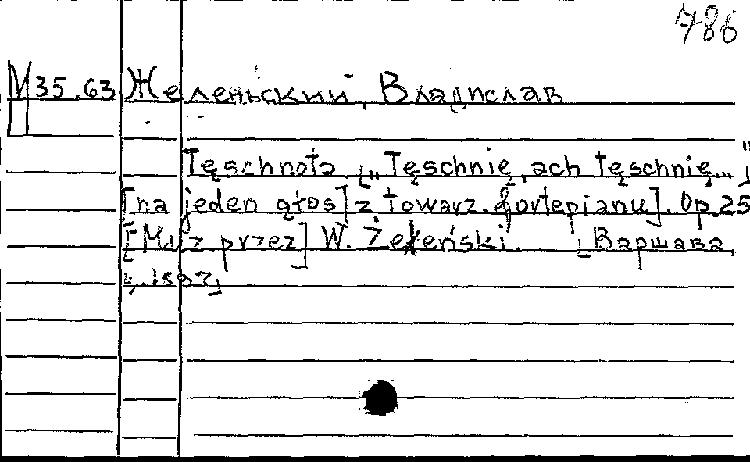 786
М 35.63 Желеньский, Владислав
Tęschnota [„Tęschnię, ach tęschnię..."]
[na jeden głos] z towarz. fortepianu]. Op. 25
[Muz. przez] W. Żeleński. [Варшава,